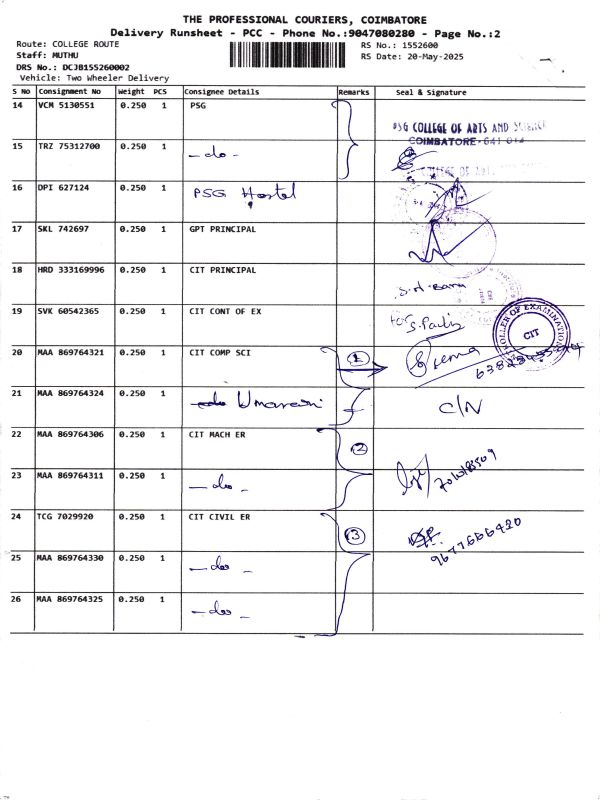 THE PROFESSIONAL COURIERS, COIMBATORE
Delivery Runsheet - PCC - Phone No.:9047080280 - Page No.:2
Route: COLLEGE ROUTE
Staff: MUTHU
DRS No.: DC3B155260002
Vehicle: Two Wheeler Delivery
RS No.: 1552600
RS Date: 20-May-2025
S No Consignment No Weight PCS Consignee Details Remarks Seal & Signature
14 VCM 5130551 0.250 1 PSG
PSG COLLEGE OF ARTS AND SCIENCE
COIMBATORE-641 014
15 TRZ 75312700 0.250 1 -do-
16 DPI 627124 0.250 1 PSG Hostel
17 SKL 742697 0.250 1 GPT PRINCIPAL
18 HRD 333169996 0.250 1 CIT PRINCIPAL
19 SVK 60542365 0.250 1 CIT CONT OF EX
CIT
20 MAA 869764321 0.250 1 CIT COMP SCI 1
21 MAA 869764324 0.250 1 C/N
22 MAA 869764306 0.250 1 CIT MACH ER 2
23 MAA 869764311 0.250 1 -do-
24 TCG 7029920 0.250 1 CIT CIVIL ER 3
9677666420
25 MAA 869764330 0.250 1 -do-
26 MAA 869764325 0.250 1 -do-